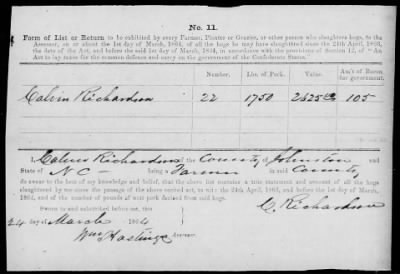 No. 11.
Form of List or Return to be exhibited by every Farmer, Planter or Grazier, or other person who slaughters hogs, to the
Assessor, on or about the 1st day of March, 1864, of all the hogs he may have slaughtered since the 24th April, 1863,
the date of the Act, and before the said 1st day of March, 1864, in accordance with the provisions of Section 12, of "An
Act to lay taxes for the common defence and carry on the government of the Confederate States."
Number. Lbs. of Pork. Value. Am't of Bacon for government.
Calvin Richardson 22 1750 2625 105
I, Calvin Richardson of the County of Johnston and
State of N C - being a Farmer in said County,
do swear to the best of my knowledge and belief, that the above list contains a true statement and account of all the hogs
slaughtered by me since the passage of the above recited act, to wit: the 24th April, 1863, and before the 1st day of March,
1864, and of the number of pounds of nett pork derived from said hogs.
C. Richardson
Sworn to and subscribed before me, this
24 day of March 1864
Wm Hastings Assessor.